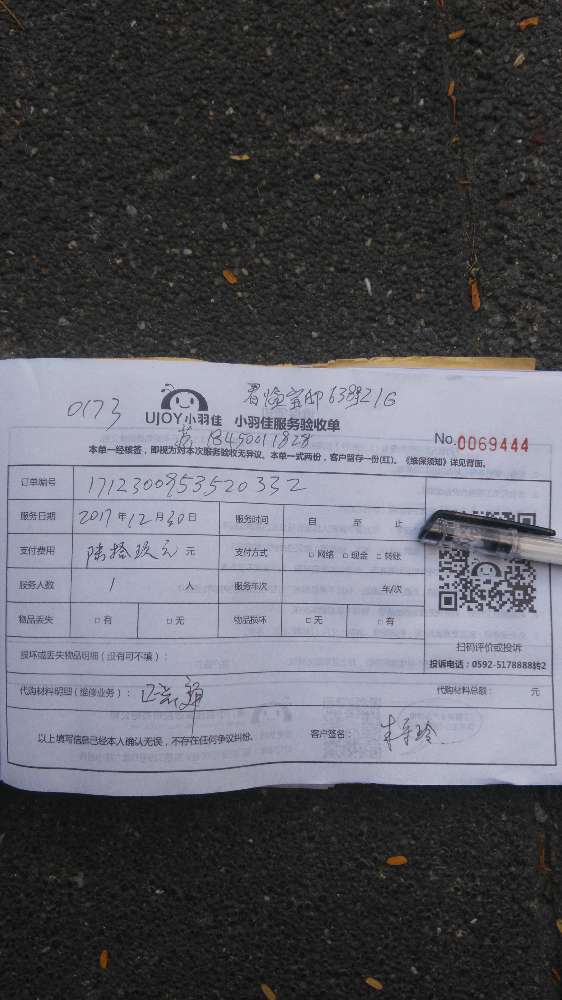 0173
UJOY小羽佳 小羽佳服务验收单
苏 13450011828
No.0069444
本单一经核签，即视为对本次服务验收无异议。本单一式两份，客户留存一份(红)。《维保须知》详见背面。
订单编号 1712300953520332
服务日期 2017年12月30日 服务时间 自 至 止
支付费用 陆拾玖元 元 支付方式 □网络 □现金 □转账
服务人数 1 人 服务年次 年/次
物品丢失 □有 □无 物品损坏 □无 □有
扫码评价或投诉
损坏或丢失物品明细（没有可不填）：
投诉电话：0592-5178888转2
代购材料明细（维修业务）： 代购材料总额： 元
以上填写信息已经本人确认无误，不存在任何争议纠纷。 客户签名：